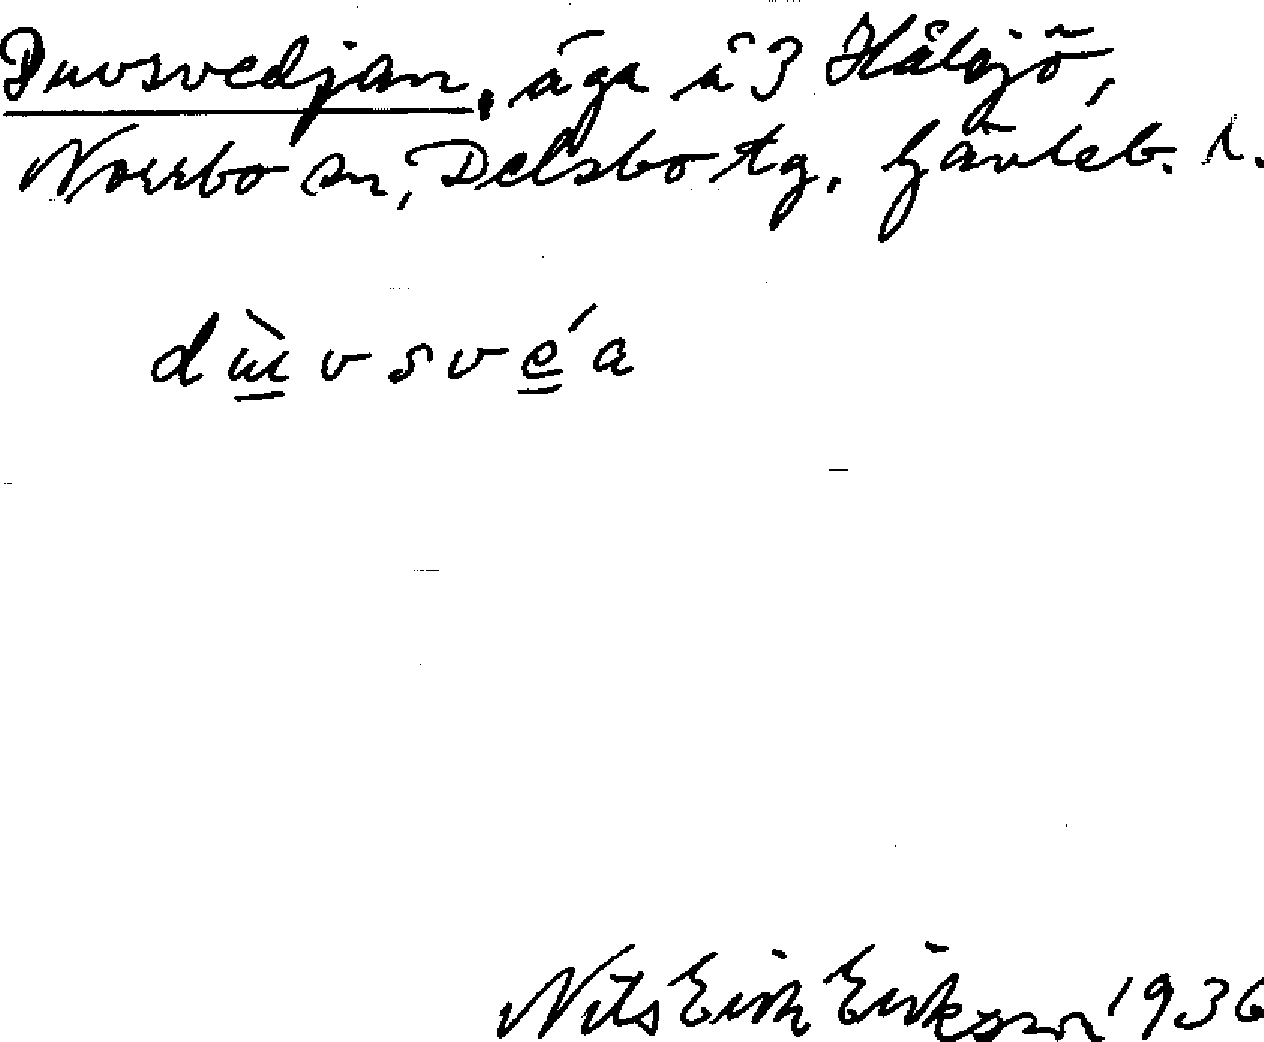 Duvsvedjan, äga å 3 Hålsjö,
Norrbo sn, Delsbo tg. Gävleb. l.
dùvsvéa
Nils Erik Eriksson 1936